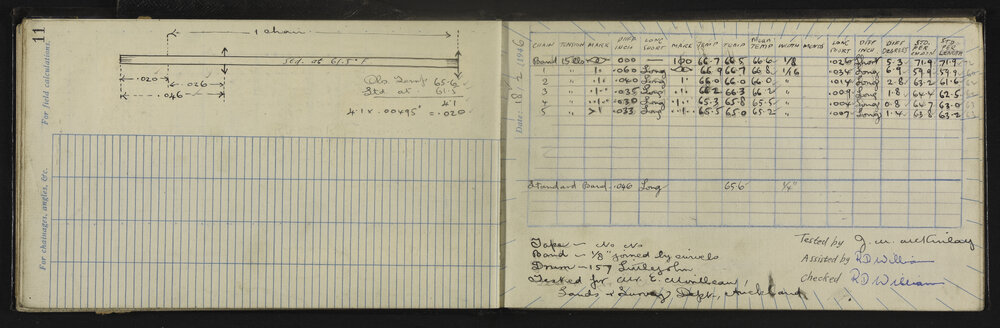 11
For field calculations.
1 chain
Std. at 61.5° F
.020
.026
.046
Obs. Temp. 65.6
Std at 61.5
4.1
4.1 x .00495 = .020
For chainages, angles, &c.
Date: 18/2/1946
CHAIN TENSION MARK DIFF INCH LONG SHORT MARK TEMP TEMP MEAN TEMP WIDTH LONG SHORT DIFF INCH DIFF DEGREES STD. PER CHAIN STD. PER LENGTH
Band 15 lbs 000 — 66.7 66.5 66.6 1/8 .026 Short 5.3 71.9 71.9
1 " .060 Long 66.9 66.7 66.8 1/16 .034 Long 6.9 59.9 59.9
2 " .040 Long 66.0 66.0 66.0 " .014 Long 2.8 63.2 61.6
3 " .035 Long 66.2 66.3 66.2 " .009 Long 1.8 64.4 62.5
4 " .030 Long 65.3 65.8 65.5 " .004 Long 0.8 64.7 63.0
5 " .033 Long 65.5 65.0 65.2 " .007 Long 1.4 63.8 63.2
Standard Band .046 Long 65.6 1/4"
Tape — No No
Band — 1/8" joined by swivels
Drum — 157 Littlejohn
Tested for Mr. E.
Lands & Survey Dept. Auckland
Tested by J. W. McKinlay
Assisted by RD William
Checked RD William